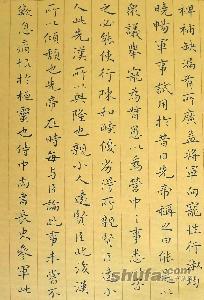 裨補缺漏有所廣益將軍向寵性行淑均
曉暢軍事試用於昔日先帝稱之曰能是以
眾議舉寵為督愚以為營中之事悉
之必能使行陣和睦優劣得所親賢臣遠小
人此先漢所以興隆也親小人遠賢臣此後漢
所以傾頹也先帝在時每與臣論此事未嘗不
歎息痛恨於桓靈也侍中尚書長史參軍此